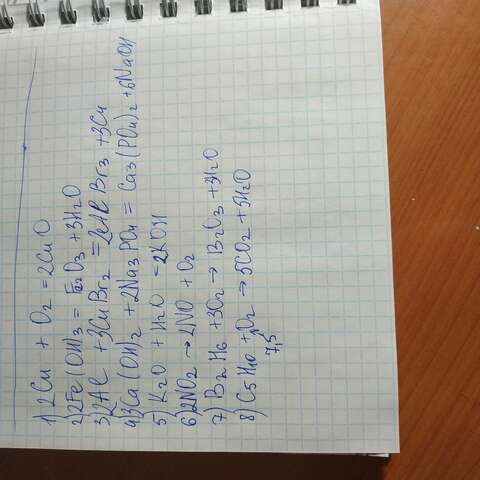 1) 2Cu + O2 = 2CuO
2) 2Fe(OH)3 = Fe2O3 + 3H2O
3) 2Al + 3CuBr2 = 2AlBr3 + 3Cu
4) 3Ca(OH)2 + 2Na3PO4 = Ca3(PO4)2 + 6NaOH
5) K2O + H2O = 2KOH
6) 2NO2 → 2NO + O2
7) B2H6 + 3O2 → B2O3 + 3H2O
8) C5H10 + O2 → 5CO2 + 5H2O
7,5